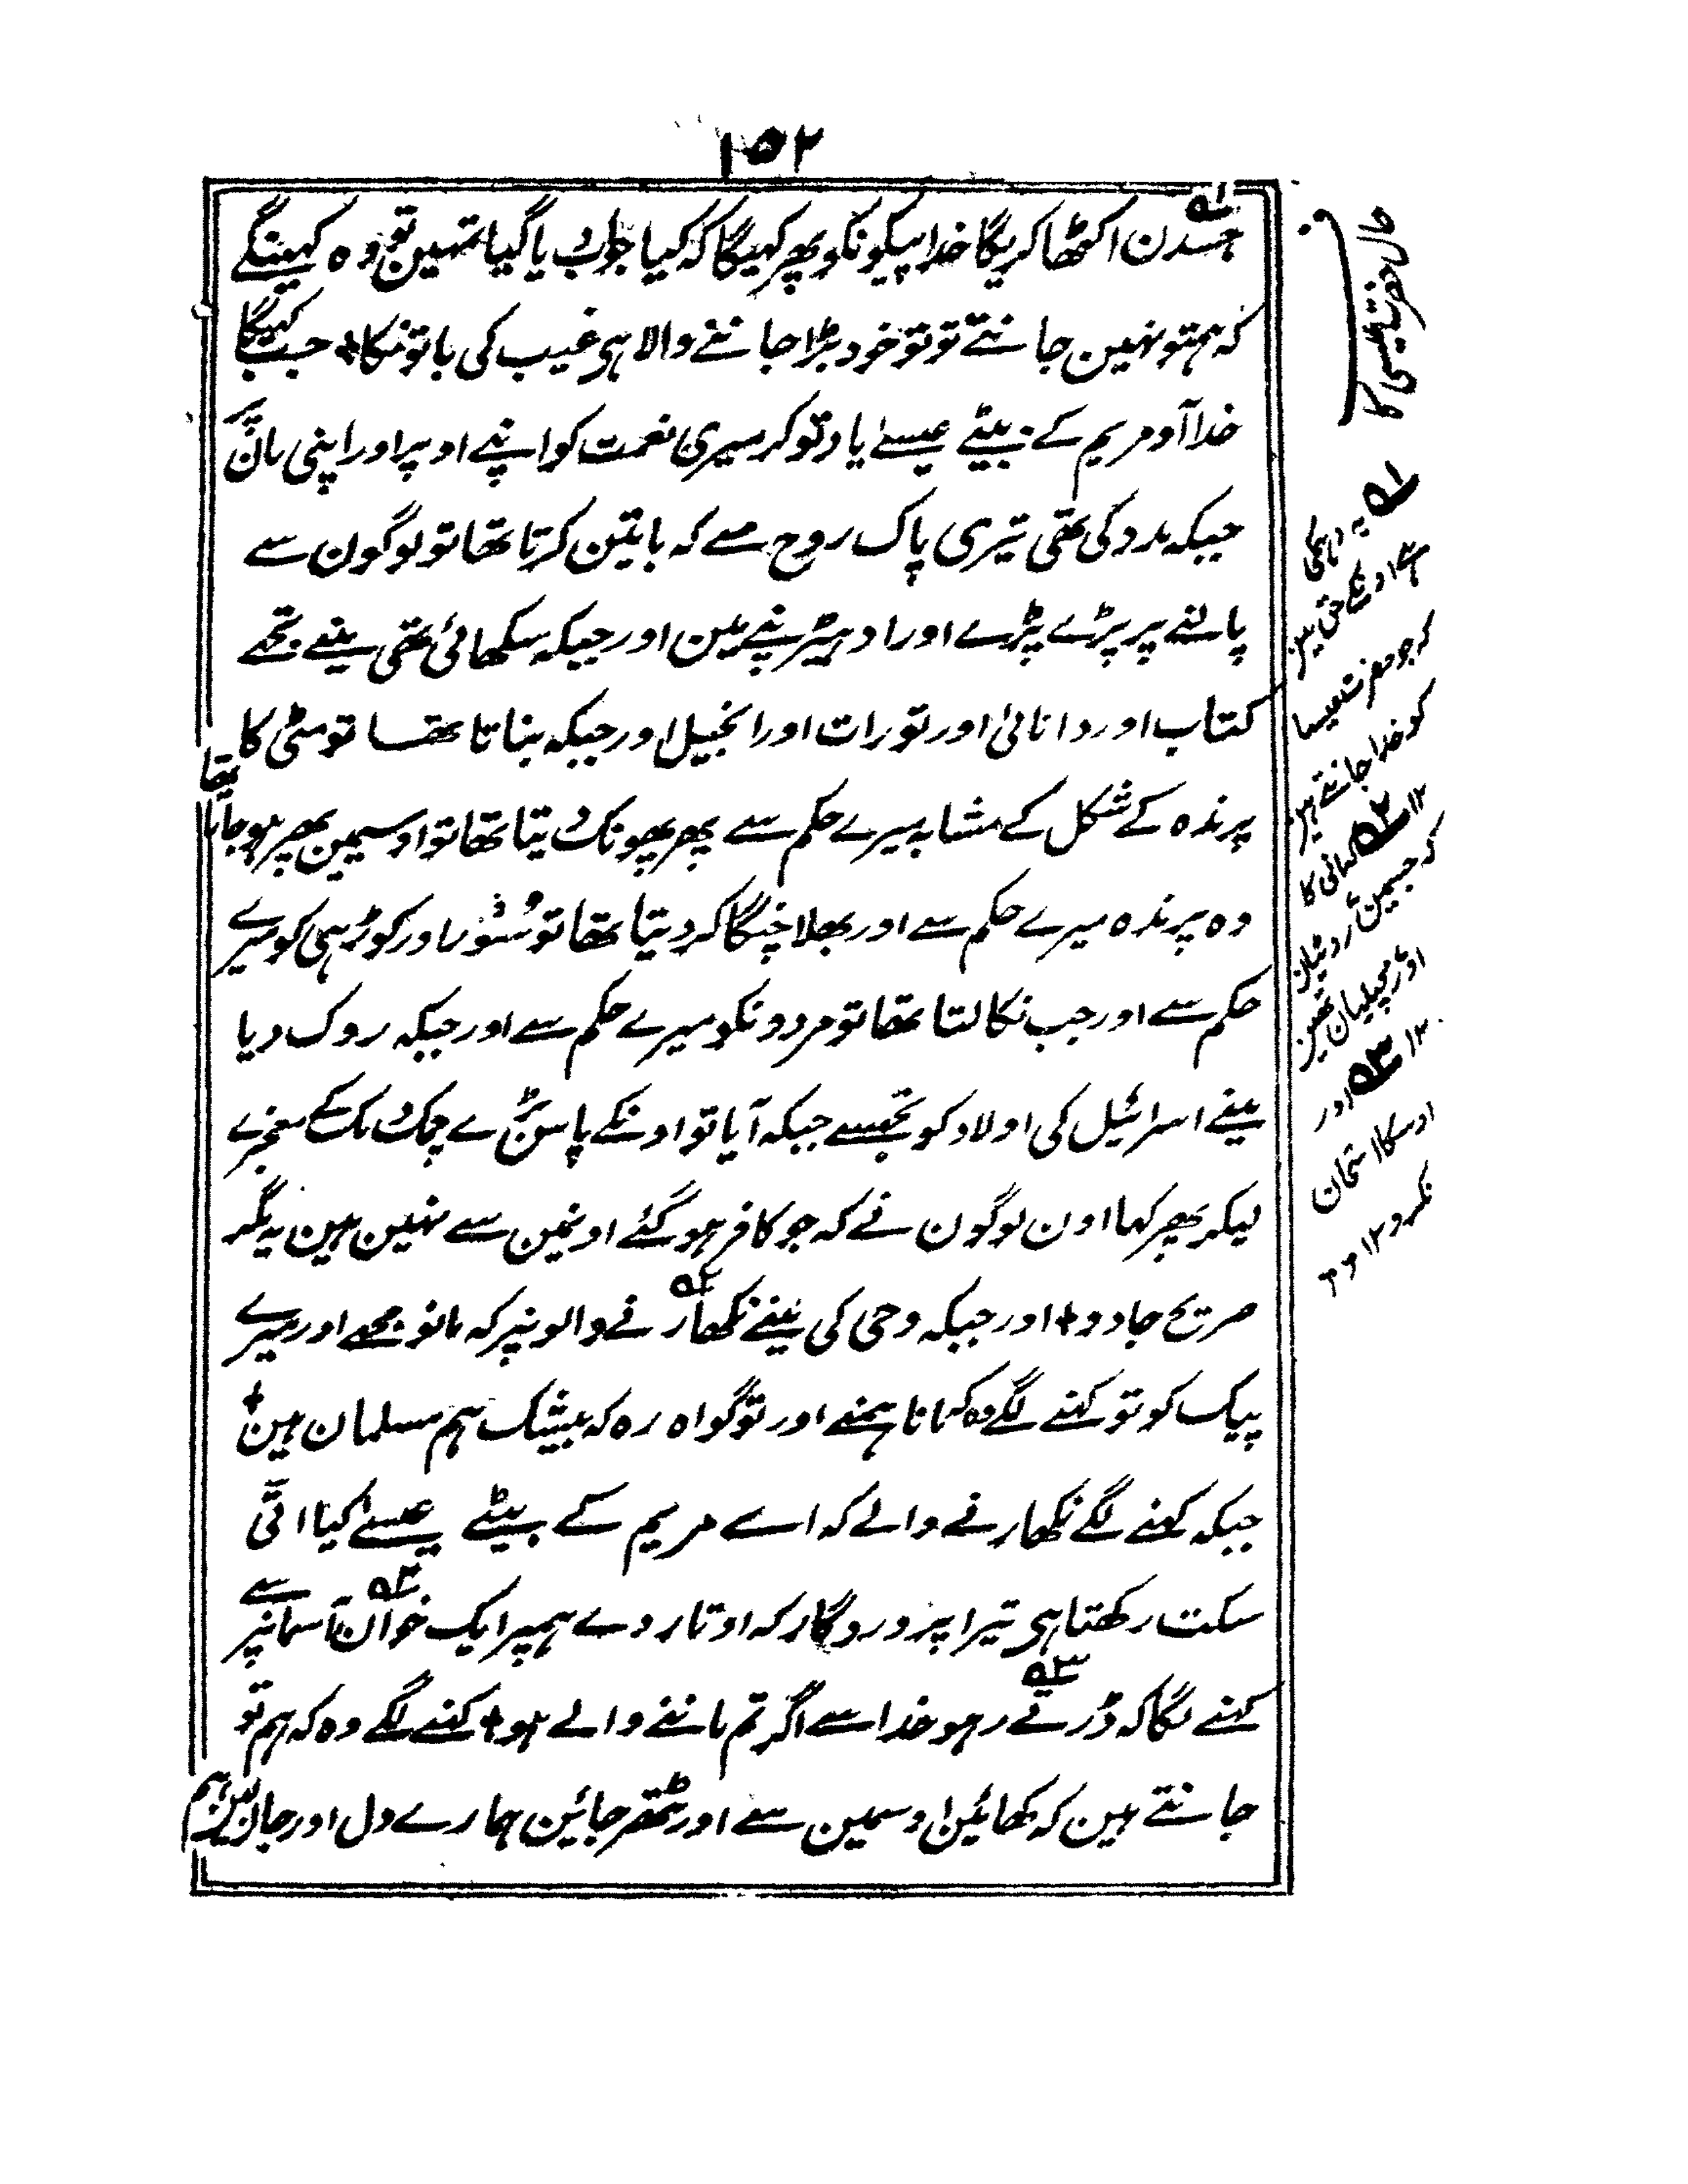 ۱۵۲
جسدن اکٹھا کریگا خدا پیکونکو پھر کہیگا کہ کیا جواب دیا گیا تمہین تو وہ کہینگے
کہ ہمتو نہین جانتے تو تو خود بڑا جاننے والا ہی غیب کی باتونکا + جب کہیگا
خدا آو مریم کے بیٹے عیسےٰ یاد تو کر میری نعمت کو اپنے اوپر اور اپنی مان پر
جبکہ مدد کی تھی تیری پاک روح سے کہ باتین کرتا تھا تو لوگون سے
پالنے پر پڑے پڑے اور ادہیڑپنے مین اور جبکہ سکھائی تھی مینے تجھے
کتاب اور دانائی اور تورات اور انجیل اور جبکہ بناتا تھا تو مٹی کا
پرندہ کے شکل کے مشابہ میرے حکم سے پھر پھونک دیتا تھا تو اوسیمین پھر ہو جاتا تھا
وہ پرندہ میرے حکم سے اور بھلا چنگا کر دیتا تھا تو اور کوڑہی کو میرے
حکم سے اور جب نکالتا تھا تو مردونکو میرے حکم سے اور جبکہ روک دیا
مینے اسرائیل کی اولاد کو تجھسے جبکہ آیا تو اونکے پاس بڑے چمک دمک کے معجزے
لیکر پھر کہا اون لوگون نے کہ جو کافر ہو گئے اونمین سے نہین ہین یہ مگر
صریح جادو + اور جبکہ وحی کی مینے نکھارنے والونپر کہ مانو مجھے اور میرے
پیک کو تو کہنے لگے وہ کہ مانا ہمنے اور تو گواہ رہ کہ بیشک ہم مسلمان ہین +
جبکہ کہنے لگے نکھارنے والے کہ اے مریم کے بیٹے عیسےٰ کیا اتنی
سکت رکھتا ہی تیرا پروردگار کہ اوتار دے ہمپر ایک خوان آسمانپر سے
کہنے لگا کہ ڈرتے رہو خدا سے اگر تم ماننے والے ہو + کہنے لگے وہ کہ ہم تو
جانتے ہین کہ کھائین اوسمین سے اور ٹھہر جائین ہمارے دل اور جان لین ہم
حال حضرت عیسی کا
۵۱ یہ
اونکے حق مین
کہ جو حضرت عیسیٰ
کو خدا جانتے ہین
۱۲ ۵۲ کہانی کا
کہ جسمین روٹیان
اور مچھلیان تھین
۱۲ ۵۳ اور
اوسکا امتحان
نکرو ۱۲